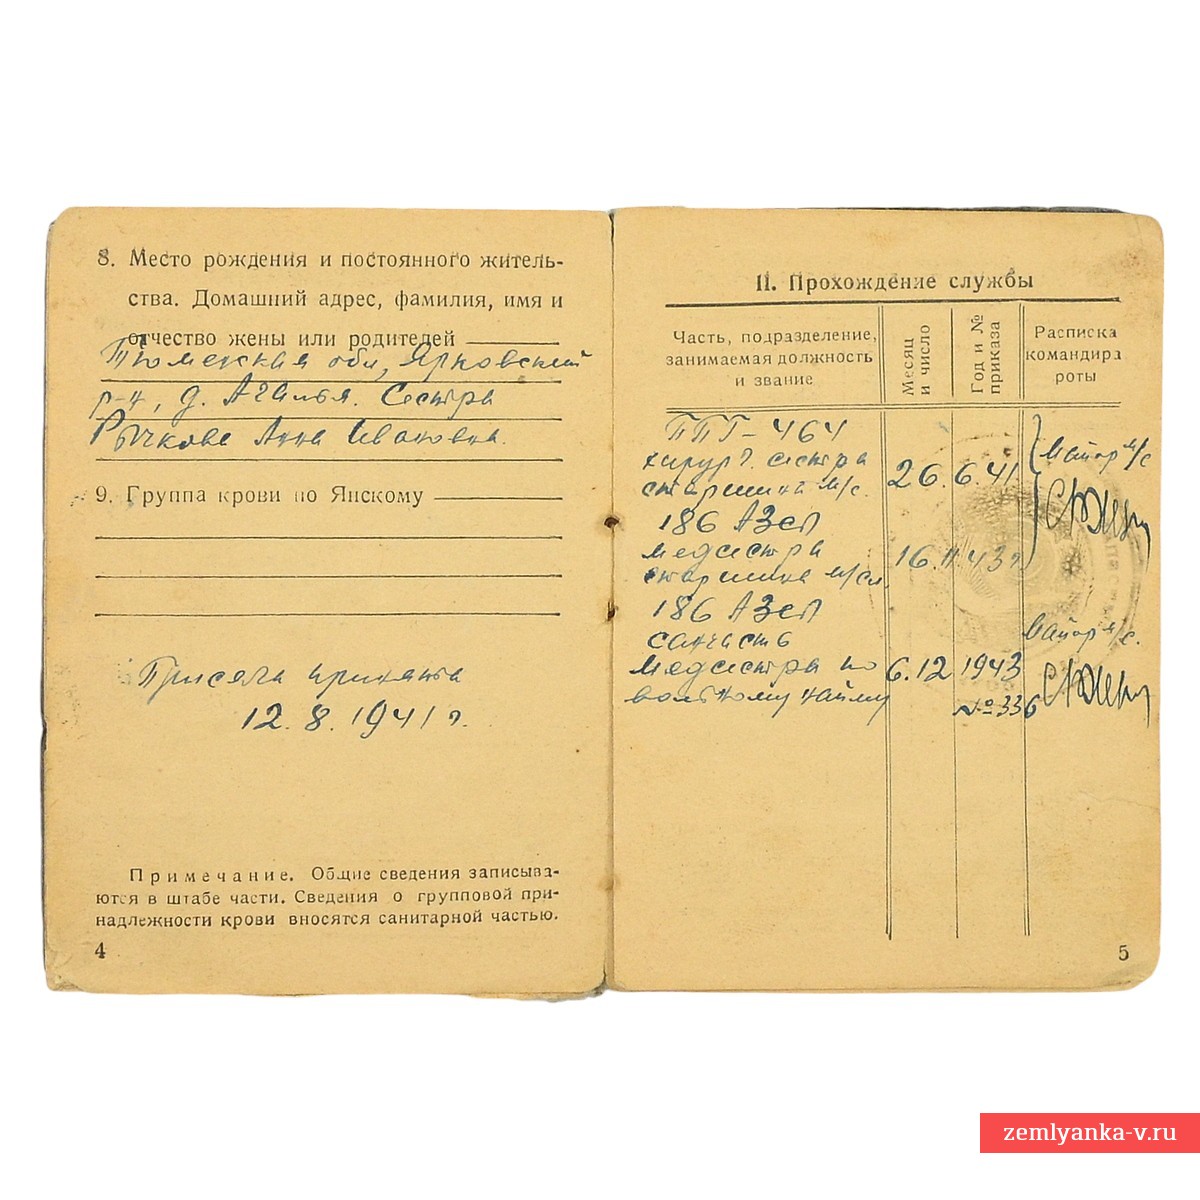 8. Место рождения и постоянного житель-
ства. Домашний адрес, фамилия, имя и
отчество жены или родителей
Тюменская обл, Ярковский
р-н, д. Агалья. Сестра
Рычкова Анна Ивановна.
9. Группа крови по Янскому
Присяга принята
12.8.1941 г.
Примечание. Общие сведения записыва-
ются в штабе части. Сведения о групповой при-
надлежности крови вносятся санитарной частью.
4
II. Прохождение службы
Часть, подразделение,
занимаемая должность
и звание
Месяц
и число
Год и №
приказа
Расписка
командира
роты
ППГ-464
хирург. сестра
старшина м/с.
26.6.41
Майор м/с
186 АЗСП
медсестра
старшина м/сл
16.11.43 г
186 АЗСП
санчасть
медсестра по
вольному найму
6.12 1943
№ 336
Майор м/с.
5
zemlyanka-v.ru